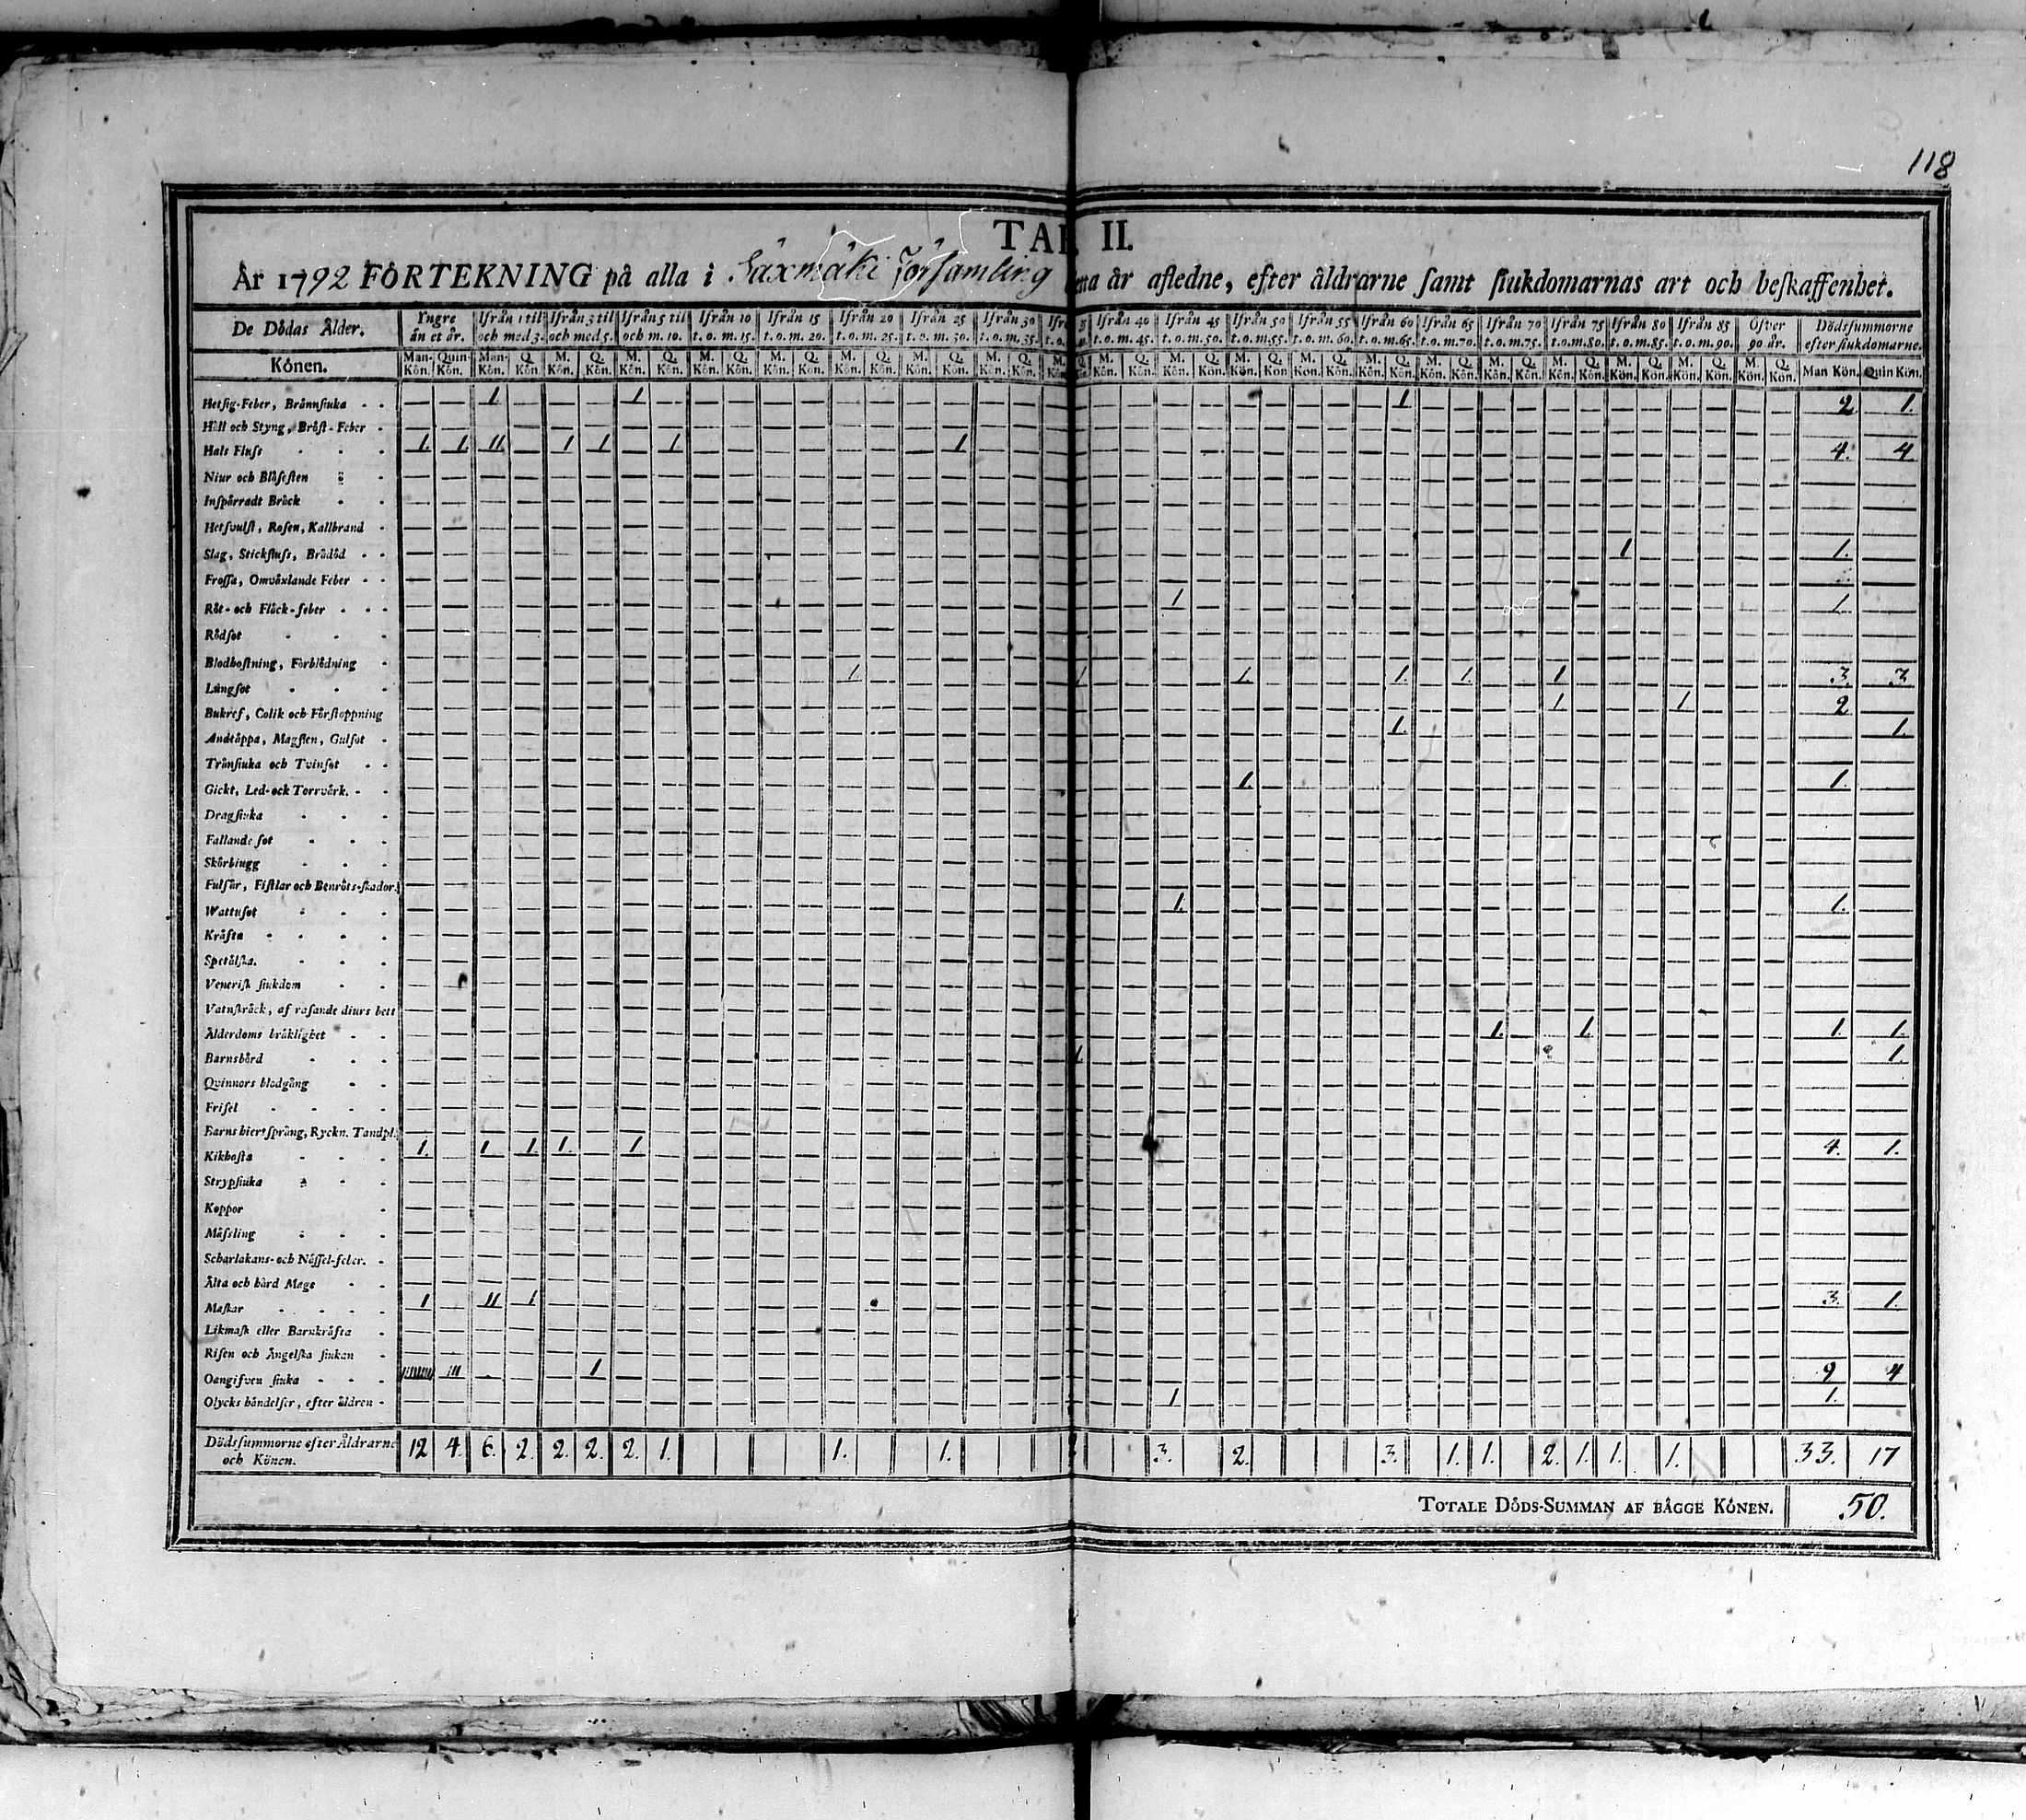 118
TAB. II.
År 1792 FÖRTEKNING på alla i Säxmäki Församling detta år afledne, efter åldrarne samt siukdomarnas art och beskaffenhet.
De Dödas Ålder. Yngre än et år. Ifrån 1 til och med 3. Ifrån 3 til och med 5. Ifrån 5 til och m. 10. Ifrån 10 t. o. m. 15. Ifrån 15 t. o. m. 20. Ifrån 20 t. o. m. 25. Ifrån 25 t. o. m. 30. Ifrån 30 t. o. m. 35. Ifrån 40 t. o. m. 45. Ifrån 45 t. o. m. 50. Ifrån 50 t. o. m. 55. Ifrån 55 t. o. m. 60. Ifrån 60 t. o. m. 65. Ifrån 65 t. o. m. 70. Ifrån 70 t. o. m. 75. Ifrån 75 t. o. m. 80. Ifrån 80 t. o. m. 85. Ifrån 85 t. o. m. 90. Öfver 90 år. Dödssummorne efter siukdomarne.
Könen. Man-Kön. Quin-Kön. Man-Kön. Q. Kön. M. Kön. Q. Kön. M. Kön. Q. Kön. M. Kön. Q. Kön. M. Kön. Q. Kön. M. Kön. Q. Kön. M. Kön. Q. Kön. M. Kön. Q. Kön. M. Kön. Q. Kön. M. Kön. Q. Kön. M. Kön. Q. Kön. M. Kön. Q. Kön. M. Kön. Q. Kön. M. Kön. Q. Kön. M. Kön. Q. Kön. M. Kön. Q. Kön. M. Kön. Q. Kön. M. Kön. Q. Kön. M. Kön. Q. Kön. M. Kön. Q. Kön. Man Kön. Quin Kön.
Hetsig-Feber, Brännsiuka 1 1 1 2 1.
Håll och Styng, Bröst-Feber
Hals Fluss 1. 1. 11. 1 1. 1 1 4. 4
Niur och Blåsesten
Inspärradt Bråck
Hetsvulst, Rosen, Kallbrand
Slag, Stickfluss, Brådöd 1 1.
Frossa, Omväxlande Feber
Röt- och Fläck-feber 1 1.
Rödsot
Blodhostning, Förblödning
Lungsot 1. 1 1. 1. 1. 1 3. 3
Bukref, Colik och Förstoppning 1 1 2
Andtäppa, Magsten, Gulsot 1. 1.
Tränsiuka och Tvinsot
Gickt, Led- ock Torrvärk. 1. 1.
Dragsiuka
Fallande sot
Skörbiugg
Fulsår, Fistlar och Benröts-skador
Wattusot 1. 1.
Kräfta
Spetälska.
Venerisk siukdom
Vatnskräck, af rasande diurs bett
Ålderdoms bräklighet 1. 1. 1. 1.
Barnsbörd 1. 1.
Qvinnors blodgång
Frisel
Barns hiertsprång, Ryckn. Tandpl.
Kikhosta 1. 1. 1. 1. 1 4. 1.
Strypsiuka
Koppor
Mässling
Scharlakans- och Nässel-feber.
Älta och hård Mage
Maskar 1 11 1 3. 1.
Likmask eller Barnkräfta
Risen och Ängelska siukan
Oangifven siuka 111 1 9 4
Olycks händelser, efter åldren 1 1.
Dödssummorne efter Åldrarne och Könen. 12 4. 6. 2. 2. 2. 2. 1. 1. 1. 2 3. 2. 3. 1. 1. 2. 1. 1. 1. 33. 17
TOTALE DÖDS-SUMMAN AF BÄGGE KÖNEN. 50.